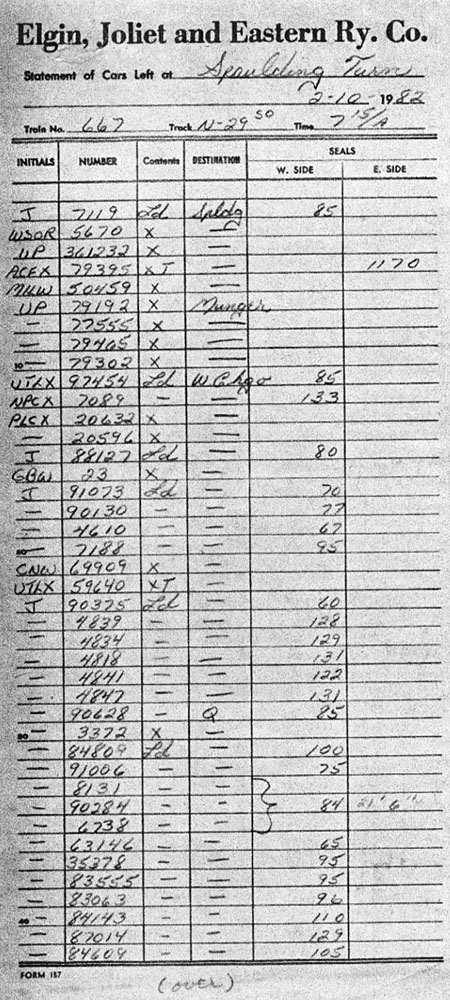 Elgin, Joliet and Eastern Ry. Co.
Statement of Cars Left at Spaulding Turn
2-10-1982
Train No. 667 Track N-29 50 Time 7 15/A
INITIALS NUMBER Contents DESTINATION SEALS
W. SIDE E. SIDE
J 7119 Ld Spldg 85
WSOR 5670 X —
UP 361232 X —
ACFX 79395 XT — 1170
MILW 50459 X —
UP 79192 X Munger
— 77555 X —
— 79465 X —
10 — 79302 X —
UTLX 97454 Ld W.Chgo 85
NPCX 7089 — — 133
PLCX 20632 X —
— 20596 X —
J 88127 Ld — 80
GBW 23 X —
J 91073 Ld — 70
— 90130 — — 77
— 4610 — — 67
20 — 7188 — — 95
CNW 69909 X —
UTLX 59640 XT —
J 90375 Ld — 60
— 4839 — — 128
— 4834 — — 129
— 4818 — — 131
— 4841 — — 122
— 4847 — — 131
— 90628 — Q 85
30 — 3372 X —
— 84809 Ld — 100
— 91006 — — 75
— 8131 — —
— 90284 — — 84 21' 6"
— 6738 — —
— 63146 — — 65
— 35378 — — 95
— 83555 — — 95
— 83063 — — 96
40 — 84143 — — 110
— 87014 — — 129
— 84609 — — 105
FORM 157
(over)